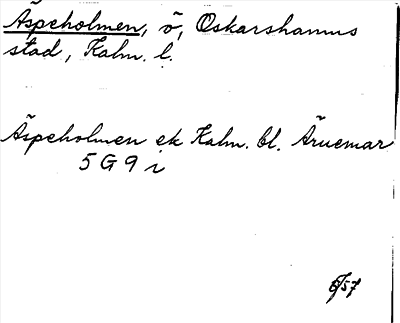 Äspeholmen, ö, Oskarshamns
stad, Kalm. l.
Äspeholmen ek Kalm. bl. Äruemar
5 G 9 i
6/57